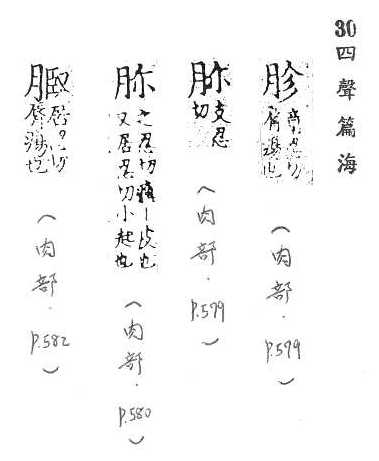 30四聲篇海
胗 章忍切
脣瘍也
(肉部.P.579)
支忍
切
(肉部.P.579)
之忍切 皮也
又居忍切小起也
(肉部.P.580)
居忍切
脣瘍也
(肉部.P.582)